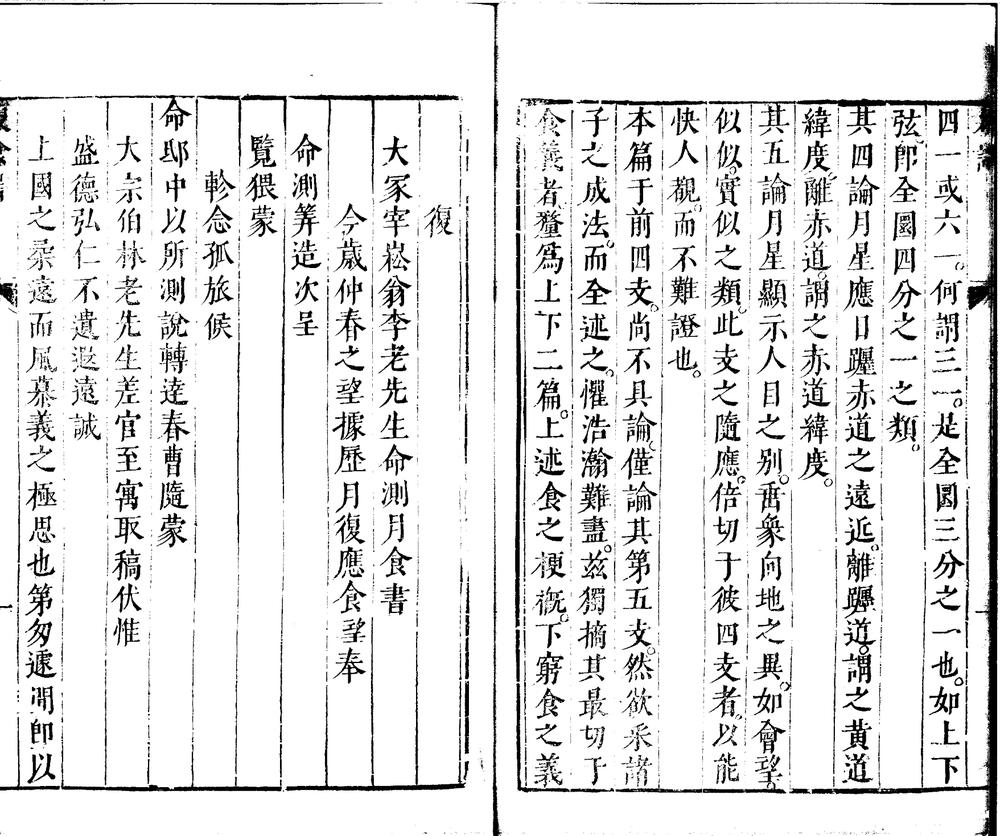 四一或六一。何謂三一。是全圜三分之一也。如上下
弦。卽全圜四分之一之類。
其四論月星應日躔赤道之遠近。離躔道。謂之黄道
緯度。離赤道。謂之赤道緯度。
其五論月星顯示人目之别。㕛衆向地之異。如會望。
似似。實似之類。此支之隨應。倍切于彼四支者。以能
快人覩。而不難證也。
本篇于前四支。尚不具論。僅論其第五支。然欲采諸
子之成法。而全述之。懼浩瀚難盡。兹獨摘其最切于
食義者。釐爲上下二篇。上述食之梗槪。下窮食之義
復
大冢宰崧翁李老先生命測月食書
今歲仲春之望據歷月復應食望奉
命測筭造次呈
覽猥蒙
軫念孤旅候
命邸中以所測說轉達春曹隨蒙
大宗伯林老先生差官至寓取稿伏惟
盛德弘仁不遺遐遠誠
上國之柔遠而風慕義之極思也第匆遽間卽以